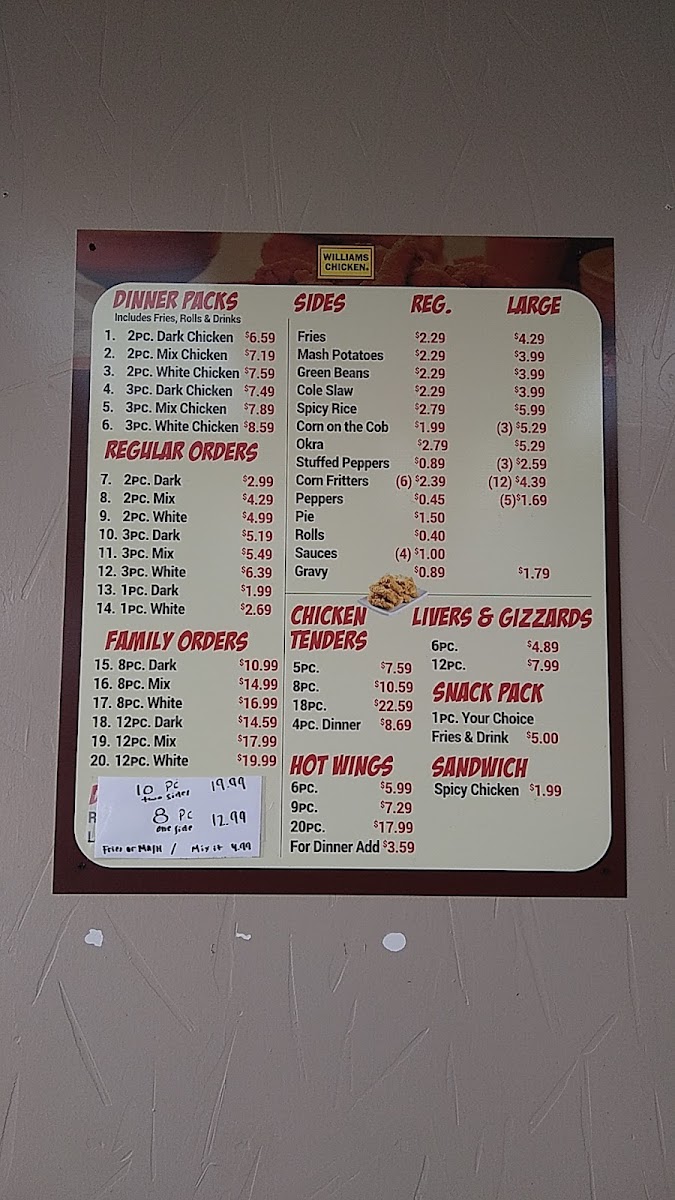 WILLIAMS
CHICKEN®
DINNER PACKS
Includes Fries, Rolls & Drinks
1. 2PC. Dark Chicken $6.59
2. 2PC. Mix Chicken $7.19
3. 2PC. White Chicken $7.59
4. 3PC. Dark Chicken $7.49
5. 3PC. Mix Chicken $7.89
6. 3PC. White Chicken $8.59
REGULAR ORDERS
7. 2PC. Dark $2.99
8. 2PC. Mix $4.29
9. 2PC. White $4.99
10. 3PC. Dark $5.19
11. 3PC. Mix $5.49
12. 3PC. White $6.39
13. 1PC. Dark $1.99
14. 1PC. White $2.69
FAMILY ORDERS
15. 8PC. Dark $10.99
16. 8PC. Mix $14.99
17. 8PC. White $16.99
18. 12PC. Dark $14.59
19. 12PC. Mix $17.99
20. 12PC. White $19.99
10 PC 19.99
two sides
8 PC 12.99
one side
Fries or MASH / Mix it 4.99
SIDES REG. LARGE
Fries $2.29 $4.29
Mash Potatoes $2.29 $3.99
Green Beans $2.29 $3.99
Cole Slaw $2.29 $3.99
Spicy Rice $2.79 $5.99
Corn on the Cob $1.99 (3) $5.29
Okra $2.79 $5.29
Stuffed Peppers $0.89 (3) $2.59
Corn Fritters (6) $2.39 (12) $4.39
Peppers $0.45 (5) $1.69
Pie $1.50
Rolls $0.40
Sauces (4) $1.00
Gravy $0.89 $1.79
CHICKEN
TENDERS
5PC. $7.59
8PC. $10.59
18PC. $22.59
4PC. Dinner $8.69
HOT WINGS
6PC. $5.99
9PC. $7.29
20PC. $17.99
For Dinner Add $3.59
LIVERS & GIZZARDS
6PC. $4.89
12PC. $7.99
SNACK PACK
1PC. Your Choice
Fries & Drink $5.00
SANDWICH
Spicy Chicken $1.99